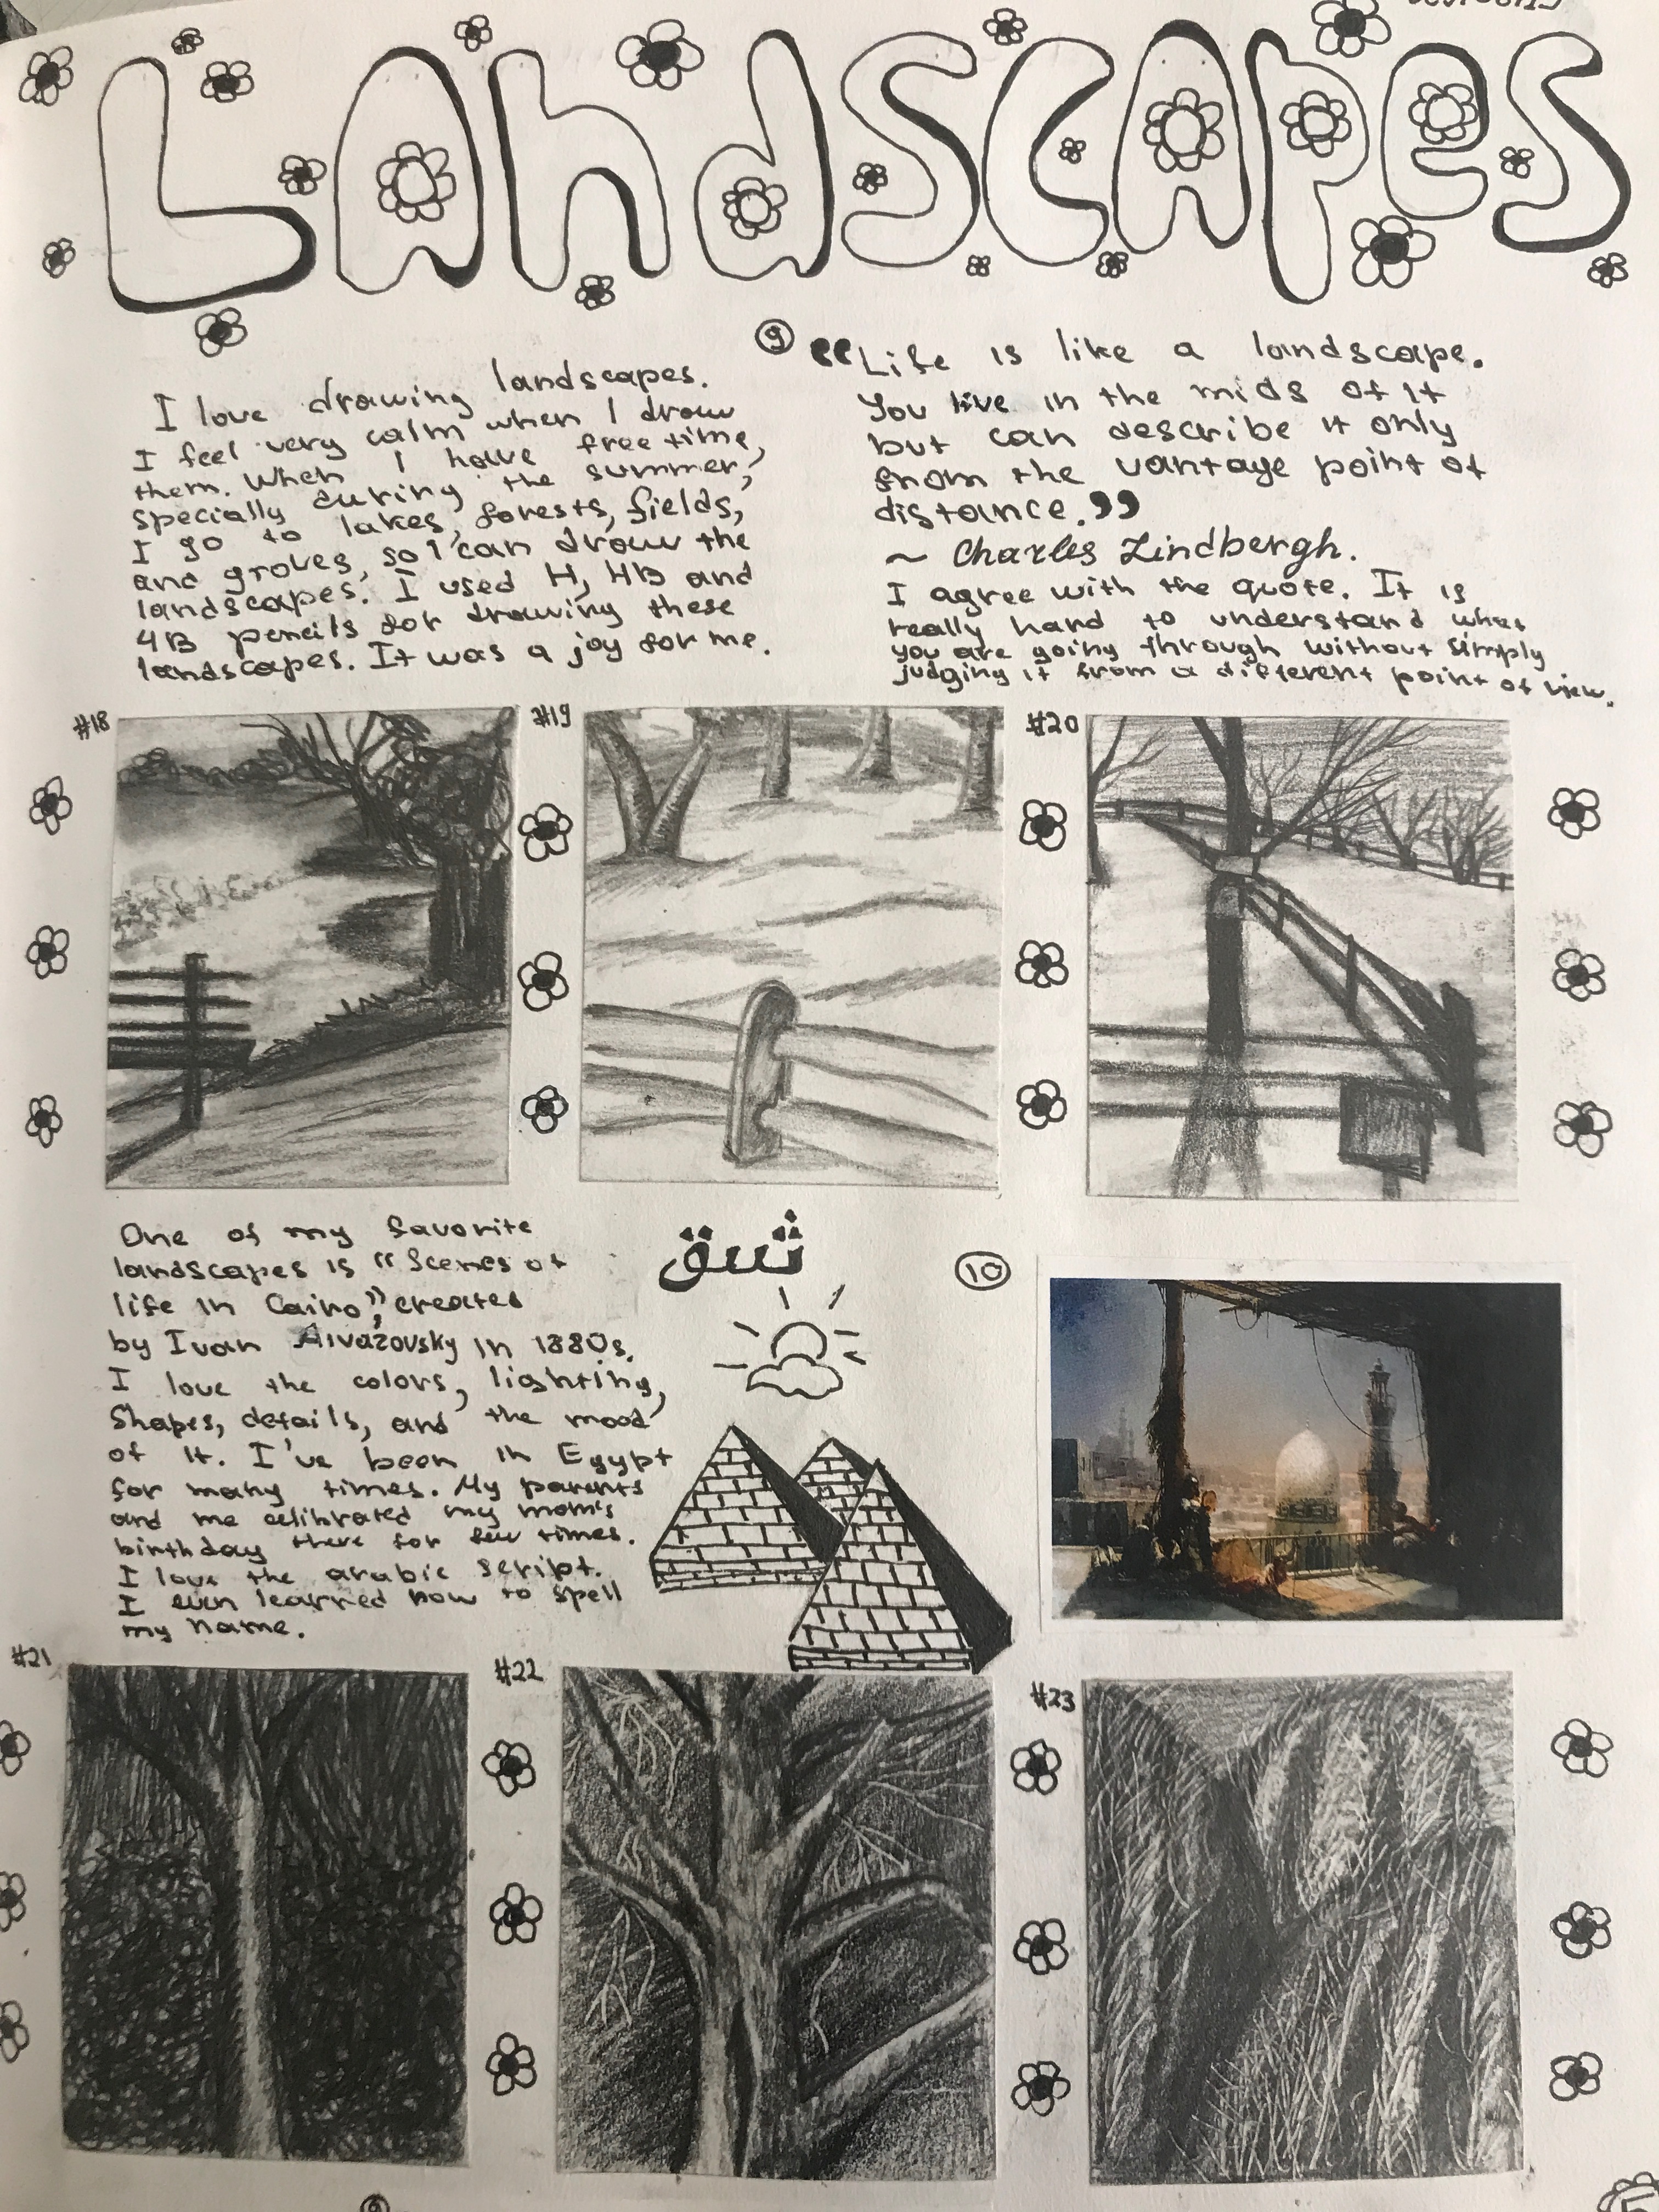 Landscapes
I love drawing landscapes.
I feel very calm when I draw
them. When I have free time,
specially during the summer,
I go to lakes, forests, fields,
and groves, so I can draw the
landscapes. I used H, HB and
4B pencils for drawing these
landscapes. It was a joy for me.
9
“Life is like a landscape.
You live in the mids of it
but can describe it only
from the vantage point of
distance.”
~ Charles Lindbergh.
I agree with the quote. It is
really hard to understand what
you are going through without simply
judging it from a different point of view.
#18
#19
#20
One of my favorite
landscapes is “Scenes of
life in Cairo”, created
by Ivan Aivazovsky in 1880s.
I love the colors, lighting,
shapes, details, and the mood
of it. I've been in Egypt
for many times. My parents
and me celibrated my mom's
birthday there for few times.
I love the arabic script.
I even learned how to spell
my name.
10
#21
#22
#23